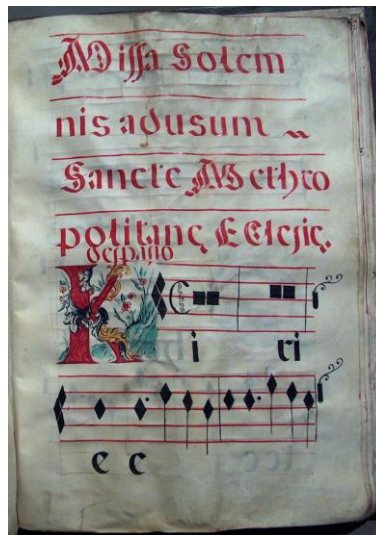 Missa Solem
nis ad usum
Sancte Methro
politanę Eclesię.
despatio
K i ri
e e